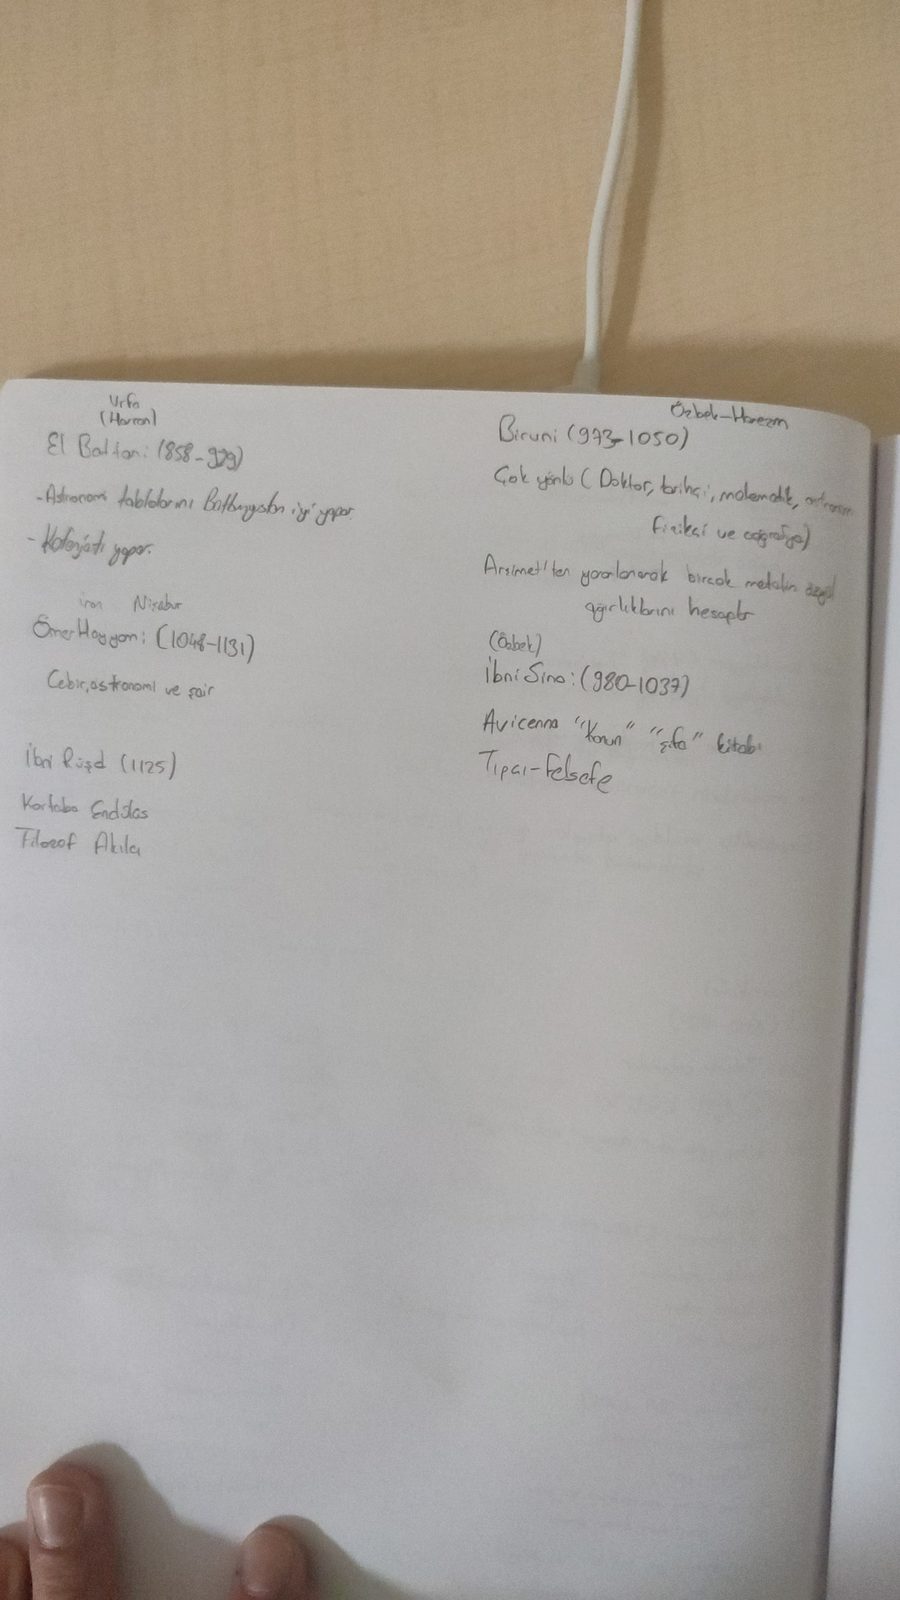 Urfa
(Harran)
El Battani: (858-929)
-Astronomi tablolarını Batlamyustan iyi yapar.
- yapar.
İran Nişabur
Ömer Hayyam: (1048-1131)
Cebir, astronomi ve şair
İbni Rüşd (1125)
Kortaba Endülüs
Filozof Akılcı
Özbek-Harezm
Biruni (973-1050)
Çok yönlü (Doktor, tarihçi, matematik, astronom
fizikçi ve coğrafya)
Arşimet'ten yararlanarak birçok metalin özgül
ağırlıklarını hesaplar
(Özbek)
İbni Sina: (980-1037)
Avicenna "Kanun" "Şifa" kitabı
Tıpçı-Felsefe